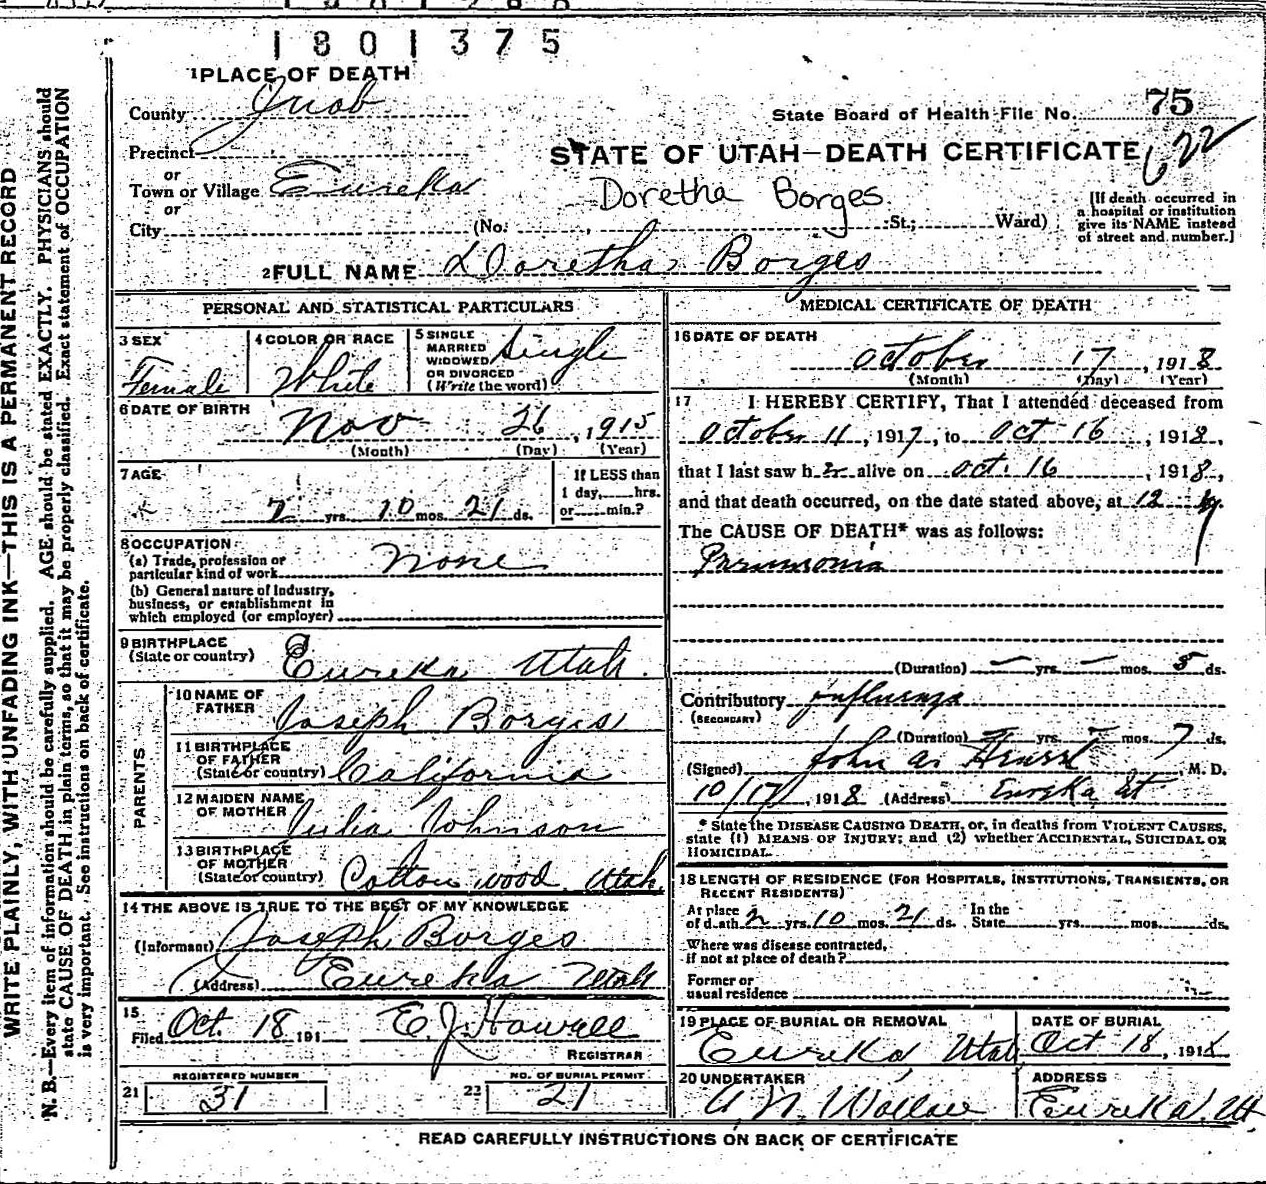 1801375
1 PLACE OF DEATH
County Juab
State Board of Health File No. 75
Precinct
STATE OF UTAH—DEATH CERTIFICATE
622
or
Town or Village Eureka
Doretha Borges
or
City (No. , St.; Ward)
[If death occurred in
a hospital or institution
give its NAME instead
of street and number.]
2 FULL NAME Doretha Borges
PERSONAL AND STATISTICAL PARTICULARS
3 SEX
Female
4 COLOR OR RACE
White
5 SINGLE
MARRIED
WIDOWED
OR DIVORCED
(Write the word)
Single
6 DATE OF BIRTH
Nov 26, 1915
(Month) (Day) (Year)
7 AGE
2 yrs. 10 mos. 21 ds.
If LESS than
1 day, hrs.
or min.?
8 OCCUPATION
(a) Trade, profession or
particular kind of work None
(b) General nature of Industry,
business, or establishment in
which employed (or employer)
9 BIRTHPLACE
(State or country) Eureka Utah.
PARENTS
10 NAME OF
FATHER Joseph Borges
11 BIRTHPLACE
OF FATHER
(State or country) California
12 MAIDEN NAME
OF MOTHER Julia Johnson
13 BIRTHPLACE
OF MOTHER
(State or country) Cottonwood Utah
14 THE ABOVE IS TRUE TO THE BEST OF MY KNOWLEDGE
(Informant) Joseph Borges
(Address) Eureka Utah
15
Filed Oct. 18 191 E. J. Howell
REGISTRAR
21 REGISTERED NUMBER
31
22 NO. OF BURIAL PERMIT
21
MEDICAL CERTIFICATE OF DEATH
16 DATE OF DEATH
October 17, 1918
(Month) (Day) (Year)
17 I HEREBY CERTIFY, That I attended deceased from
October 11, 1917, to Oct 16, 1918,
that I last saw h er alive on Oct. 16, 1918,
and that death occurred, on the date stated above, at 12
The CAUSE OF DEATH* was as follows:
Pneumonia
(Duration) — yrs. — mos. 5 ds.
Contributory Influenza
(SECONDARY)
(Duration) — yrs. — mos. 7 ds.
(Signed) John , M. D.
10/17, 1918 (Address) Eureka Ut
* State the DISEASE CAUSING DEATH, or, in deaths from VIOLENT CAUSES,
state (1) MEANS OF INJURY; and (2) whether ACCIDENTAL, SUICIDAL OR
HOMICIDAL.
18 LENGTH OF RESIDENCE (FOR HOSPITALS, INSTITUTIONS, TRANSIENTS, OR
RECENT RESIDENTS)
At place
of death 2 yrs. 10 mos. 21 ds. In the
State yrs. mos. ds.
Where was disease contracted,
if not at place of death?
Former or
usual residence
19 PLACE OF BURIAL OR REMOVAL
Eureka, Utah
DATE OF BURIAL
Oct 18, 191
20 UNDERTAKER
ADDRESS
Eureka, Ut
READ CAREFULLY INSTRUCTIONS ON BACK OF CERTIFICATE
WRITE PLAINLY, WITH UNFADING INK—THIS IS A PERMANENT RECORD
N. B.—Every item of information should be carefully supplied. AGE should be stated EXACTLY. PHYSICIANS should
state CAUSE OF DEATH in plain terms, so that it may be properly classified. Exact statement of OCCUPATION
is very important. See instructions on back of certificate.